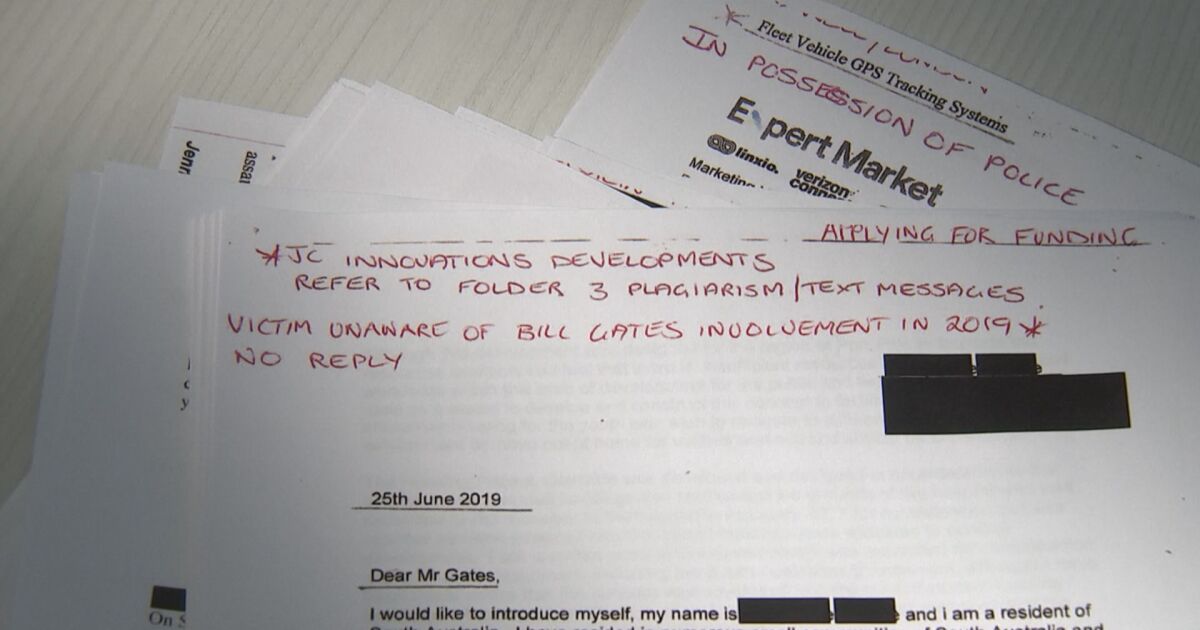 * Fleet Vehicle GPS Tracking Systems
IN POSSESSION OF POLICE
Expert Market
linxio. verizon
connec
Marketin
Jenn
assa
APPLYING FOR FUNDING
*JC INNOVATIONS DEVELOPMENTS
REFER TO FOLDER 3 PLAGIARISM/TEXT MESSAGES.
VICTIM UNAWARE OF BILL GATES INVOLVEMENT IN 2019*
NO REPLY
y
25th June 2019
Dear Mr Gates,
I would like to introduce myself, my name is and i am a resident of
On S
South Australia. I have resided in South Australia and